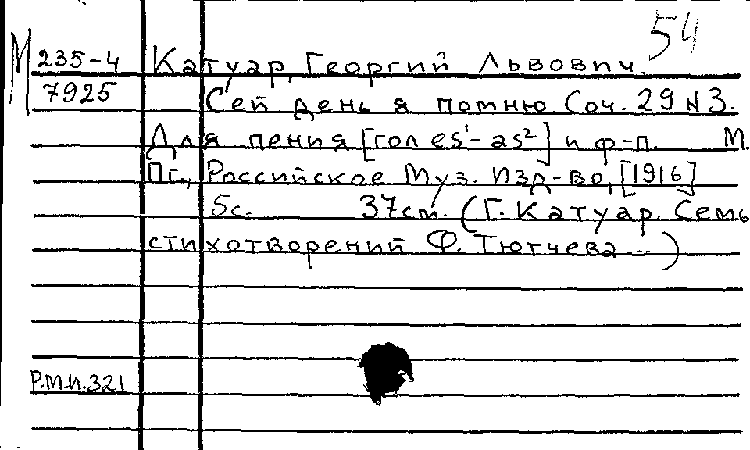 54
М 235-4 Катуар, Георгий Львович.
7925 Сей день я помню Соч. 29 N3.
Для пения [гол es¹-as²] и ф-п. М.
Пг., Российское Муз. Изд-во, [1916]
5с. 37см. (Г. Катуар. Семь
стихотворений Ф. Тютчева...)
Р.М.И.321